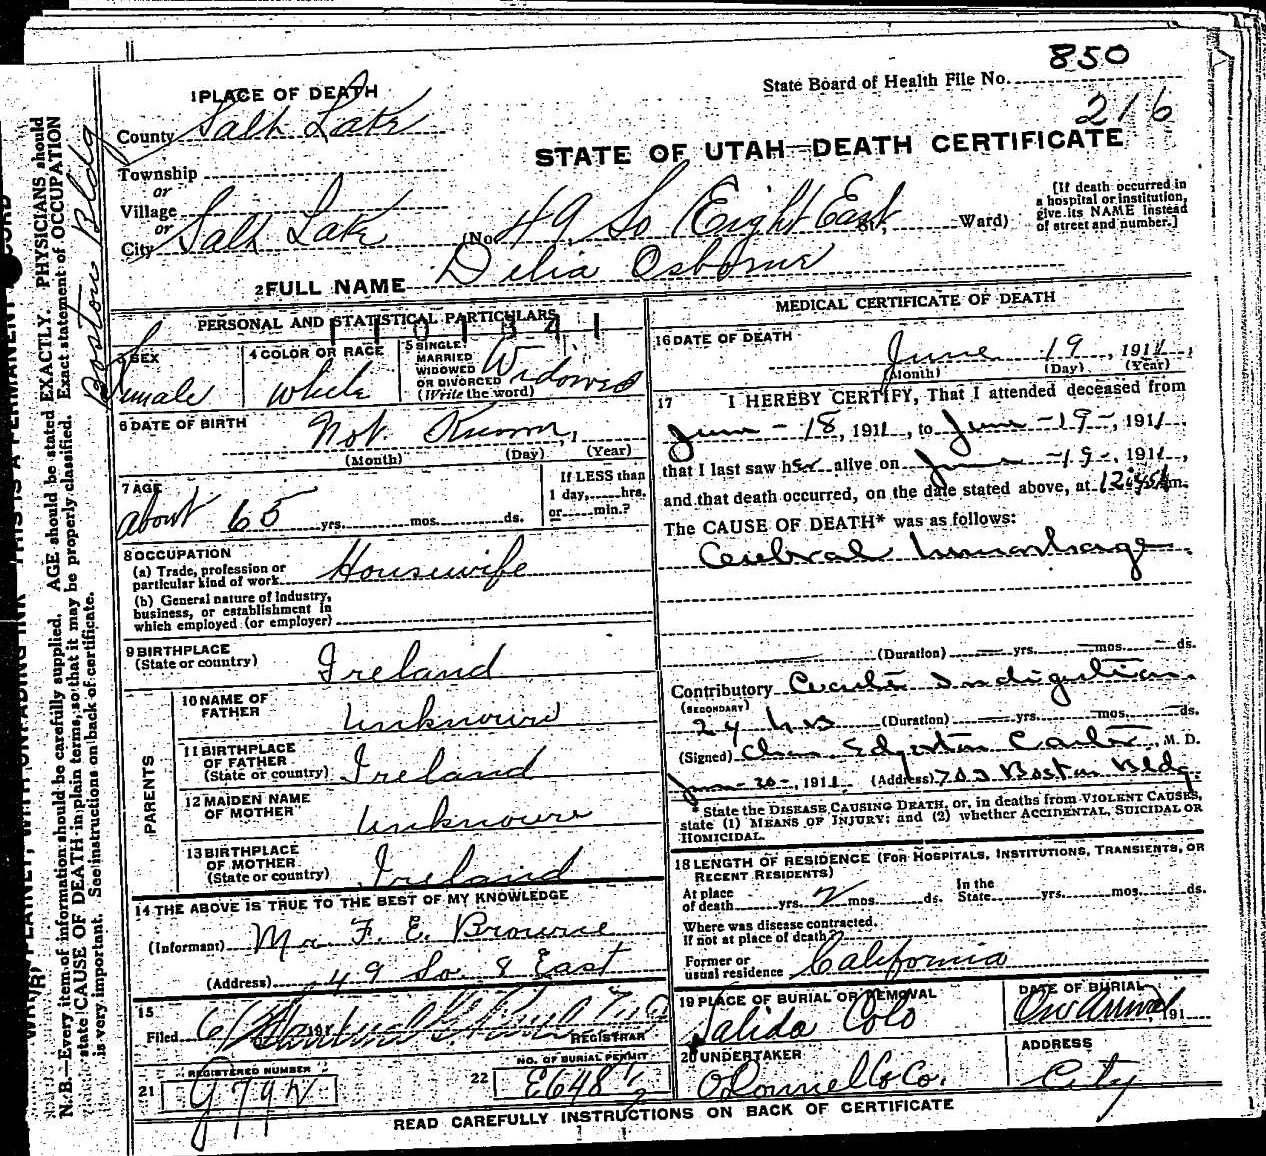 850
State Board of Health File No.
216
1 PLACE OF DEATH
County Salt Lake
STATE OF UTAH—DEATH CERTIFICATE
Township
or
Village
or
City Salt Lake (No. 49 So Eight East St., Ward)
[If death occurred in a hospital or institution, give its NAME instead of street and number.]
2 FULL NAME Delia Osborne
PERSONAL AND STATISTICAL PARTICULARS
1101341
3 SEX Female
4 COLOR OR RACE White
5 SINGLE MARRIED WIDOWED OR DIVORCED (Write the word) Widowed
6 DATE OF BIRTH Not Known, 1
(Month) (Day) (Year)
7 AGE about 65 yrs. mos. ds.
If LESS than 1 day, hrs. or min.?
8 OCCUPATION
(a) Trade, profession or particular kind of work Housewife
(b) General nature of industry, business, or establishment in which employed (or employer)
9 BIRTHPLACE (State or country) Ireland
PARENTS
10 NAME OF FATHER Unknown
11 BIRTHPLACE OF FATHER (State or country) Ireland
12 MAIDEN NAME OF MOTHER Unknown
13 BIRTHPLACE OF MOTHER (State or country) Ireland
14 THE ABOVE IS TRUE TO THE BEST OF MY KNOWLEDGE
(Informant) Mr F. E. Browne
(Address) 49 So. 8 East
15
Filed 6/ 191
REGISTRAR
REGISTERED NUMBER
21
NO. OF BURIAL PERMIT
22 E648 1/2
MEDICAL CERTIFICATE OF DEATH
16 DATE OF DEATH
June 19, 1911,
(Month) (Day) (Year)
17 I HEREBY CERTIFY, That I attended deceased from
June - 18, 1911, to June - 19 -, 1911,
that I last saw her alive on June - 19 -, 1911,
and that death occurred, on the date stated above, at m.
The CAUSE OF DEATH* was as follows:
Cerebral hemorhage
(Duration) yrs. mos. ds.
Contributory Acute Indigestion
(SECONDARY)
24 hrs (Duration) yrs. mos. ds.
(Signed) Chas. Edgerton Carter, M. D.
June - 20 -, 1911. (Address) 703 Boston Bldg.
* State the DISEASE CAUSING DEATH, or, in deaths from VIOLENT CAUSES, state (1) MEANS OF INJURY; and (2) whether ACCIDENTAL, SUICIDAL OR HOMICIDAL.
18 LENGTH OF RESIDENCE (FOR HOSPITALS, INSTITUTIONS, TRANSIENTS, OR RECENT RESIDENTS)
At place of death yrs. 2 mos. ds. In the State yrs. mos. ds.
Where was disease contracted, if not at place of death?
Former or usual residence California
19 PLACE OF BURIAL OR REMOVAL Salida Colo
DATE OF BURIAL On Arrival, 191
20 UNDERTAKER O'Donnell & Co.
ADDRESS City
READ CAREFULLY INSTRUCTIONS ON BACK OF CERTIFICATE
Boston Bldg
N. B.—Every item of information should be carefully supplied. AGE should be stated EXACTLY. PHYSICIANS should
state CAUSE OF DEATH in plain terms, so that it may be properly classified. Exact statement of OCCUPATION
is very important. See instructions on back of certificate.